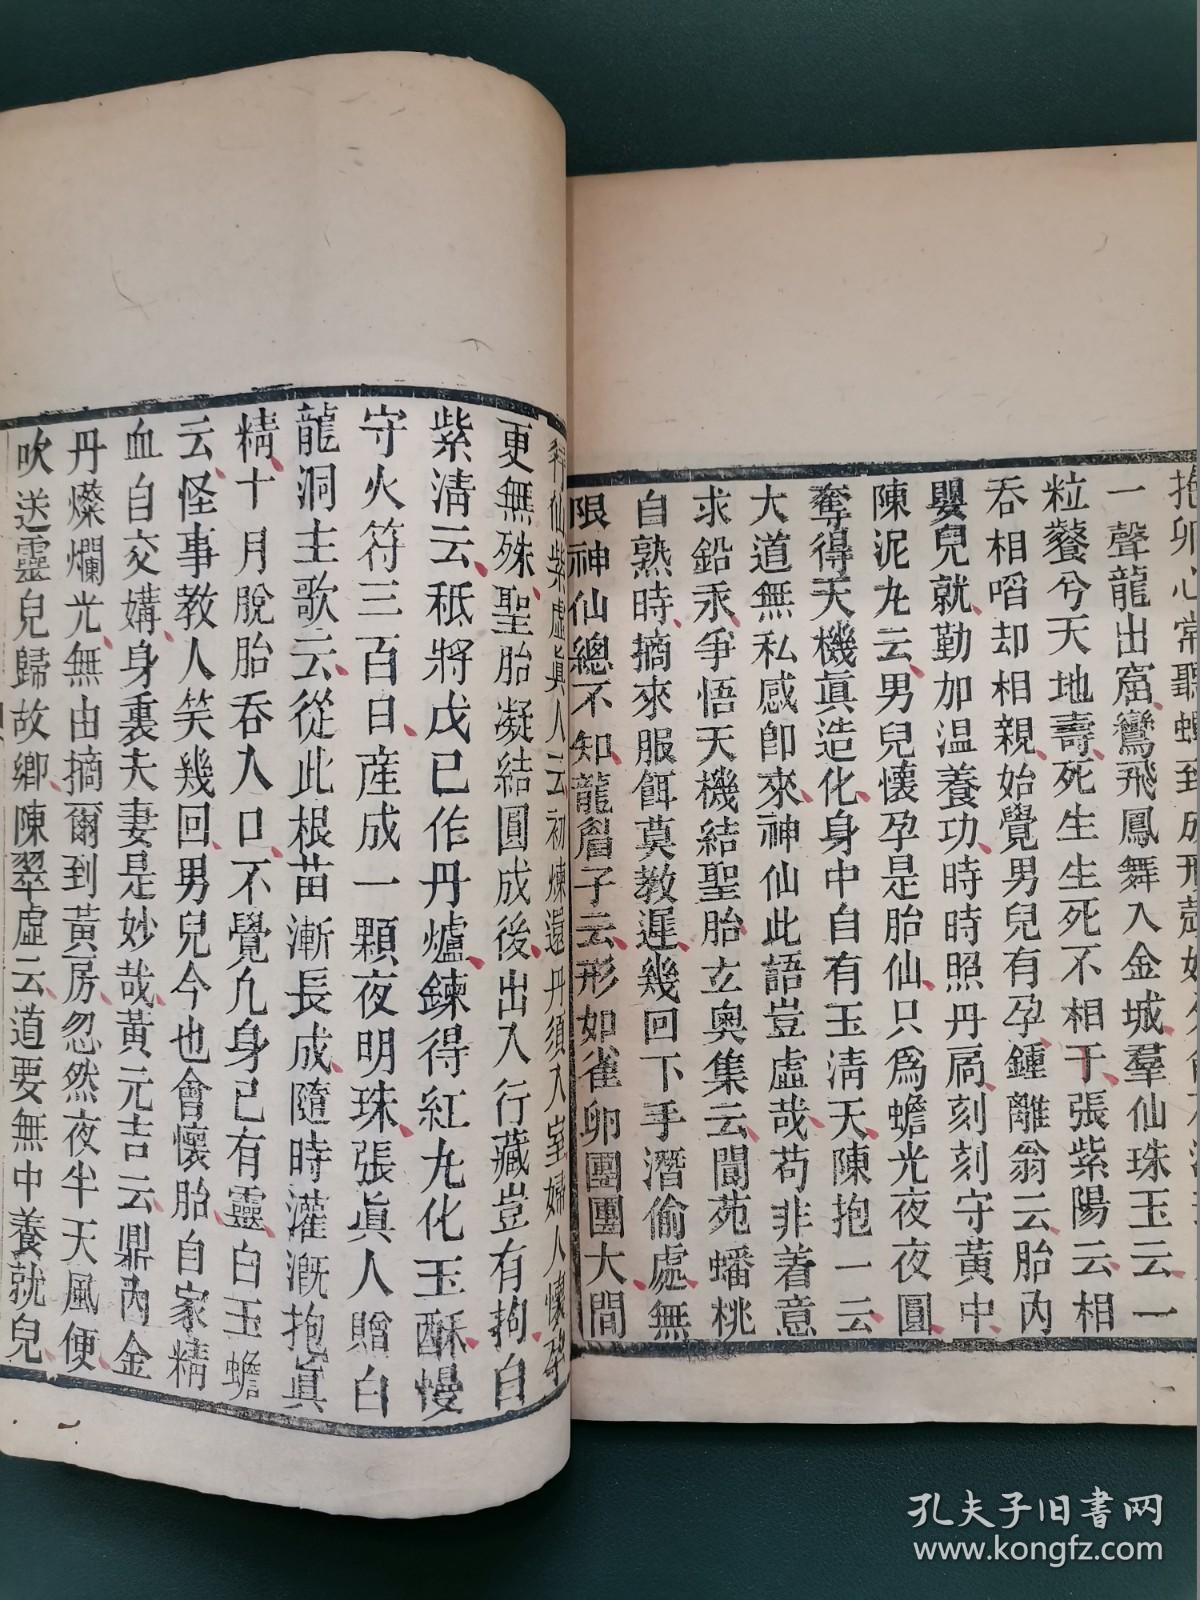 抱卵心常聽蟬到成形殼始分
一聲龍出窟鸞飛鳳舞入金城羣仙珠玉云一
粒餐兮天地壽死生生死不相干張紫陽云相
吞相啗却相親始覺男兒有孕鍾離翁云胎內
嬰兒就勤加温養功時時照丹扄刻刻守黃中
陳泥丸云男兒懷孕是胎仙只爲蟾光夜夜圓
奪得天機眞造化身中自有玉淸天陳抱一云
大道無私感卽來神仙此語豈虛哉苟非着意
求鉛汞爭悟天機結聖胎玄奥集云閬苑蟠桃
自熟時摘來服餌莫教遲幾回下手潛偷處無
限神仙總不知龍眉子云形如雀卵團團大間
紫虛眞人云初煉還丹須入室婦人懷孕
更無殊聖胎凝結圓成後出入行藏豈有拘白
紫淸云秖將戊已作丹爐鍊得紅丸化玉酥慢
守火符三百日産成一顆夜明珠張眞人贈白
龍洞主歌云從此根苗漸長成隨時灌溉抱眞
精十月脫胎吞入口不覺凡身已有靈白玉蟾
云怪事教人笑幾回男兒今也會懷胎自家精
血自交媾身裏夫妻是妙哉黃元吉云鼎內金
丹燦爛光無由摘爾到黃房忽然夜半天風便
吹送靈兒歸故鄉陳翠虛云道要無中養就兒
孔夫子旧书网
www.kongfz.com